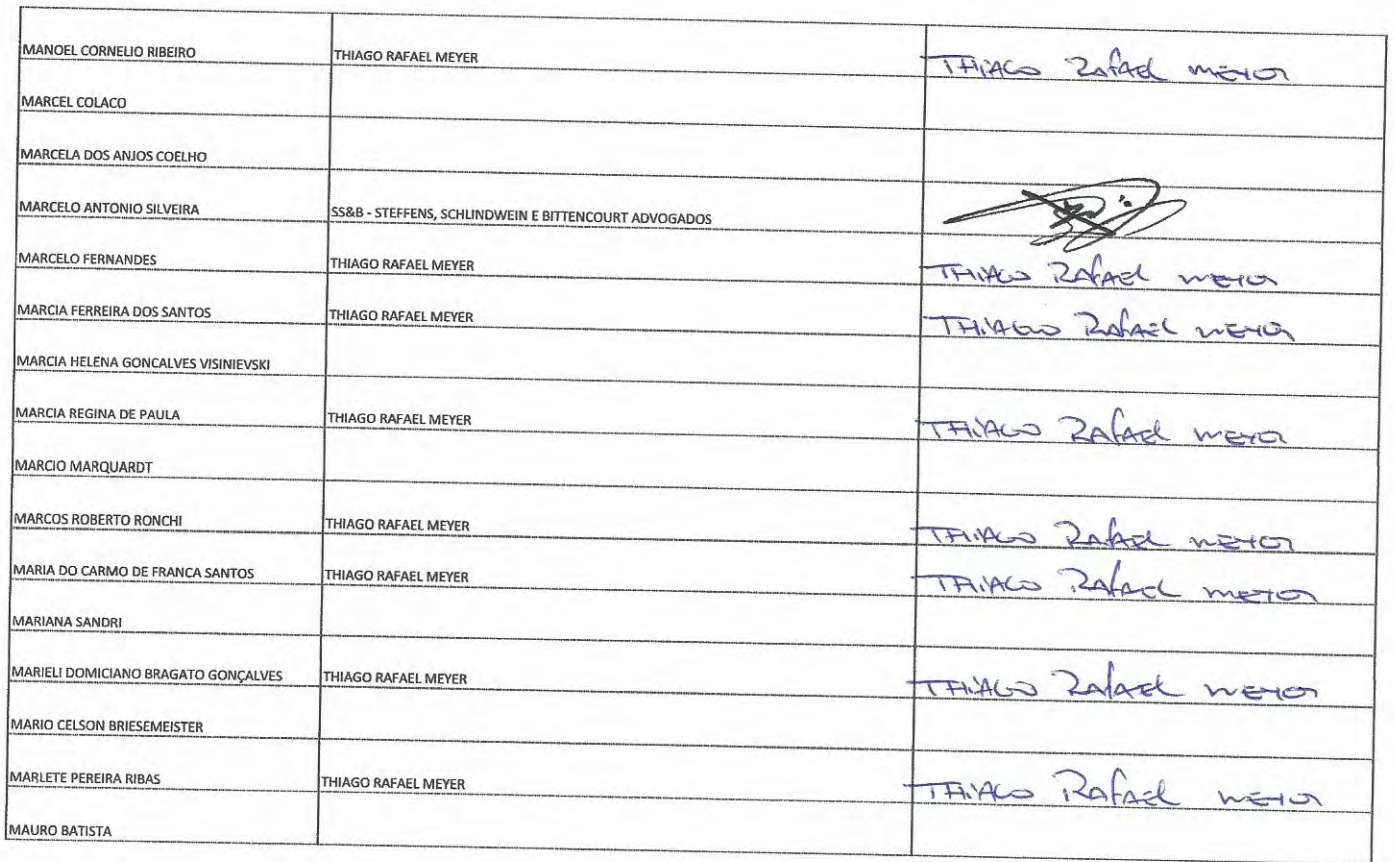 MANOEL CORNELIO RIBEIRO THIAGO RAFAEL MEYER THIAGO Rafael MEYER
MARCEL COLACO
MARCELA DOS ANJOS COELHO
MARCELO ANTONIO SILVEIRA SS&B - STEFFENS, SCHLINDWEIN E BITTENCOURT ADVOGADOS
MARCELO FERNANDES THIAGO RAFAEL MEYER THIAGO Rafael MEYER
MARCIA FERREIRA DOS SANTOS THIAGO RAFAEL MEYER THIAGO Rafael MEYER
MARCIA HELENA GONCALVES VISINIEVSKI
MARCIA REGINA DE PAULA THIAGO RAFAEL MEYER THIAGO Rafael MEYER
MARCIO MARQUARDT
MARCOS ROBERTO RONCHI THIAGO RAFAEL MEYER THIAGO Rafael MEYER
MARIA DO CARMO DE FRANCA SANTOS THIAGO RAFAEL MEYER THIAGO Rafael MEYER
MARIANA SANDRI
MARIELI DOMICIANO BRAGATO GONÇALVES THIAGO RAFAEL MEYER THIAGO Rafael MEYER
MARIO CELSON BRIESEMEISTER
MARLETE PEREIRA RIBAS THIAGO RAFAEL MEYER THIAGO Rafael MEYER
MAURO BATISTA